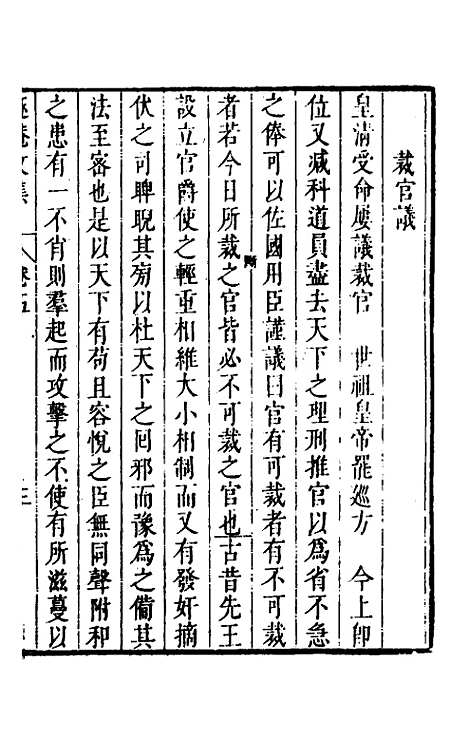 裁官議
皇淸受命屢議裁官　世祖皇帝罷巡方　今上卽
位又减科道員盡去天下之理刑推官以爲省不急
之俸可以佐國用臣謹議曰官有可裁者有不可裁
者若今日所裁之官皆必不可裁之官也古昔先王
設立官爵使之輕重相維大小相制而又有發奸摘
伏之司睥睨其旁以杜天下之回邪而豫爲之僃其
法至密也是以天下有苟且容悅之臣無同聲附和
之患有一不肖則羣起而攻擊之不使有所滋蔓以
文集　卷五